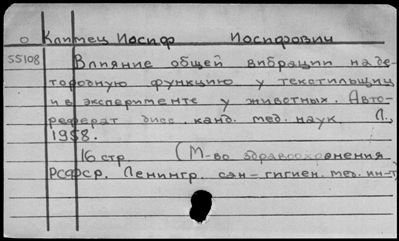 О Климец Иосиф Иосифович
55108 Влияние общей вибрации на де-
тородную функцию у текстильщиц
и в эксперименте у животных. Авто-
реферат дисс. канд. мед. наук Л.,
1958.
16 стр. (М-во здравоохранения
РСФСР. Ленингр. сан-гигиен. мед. ин-т)